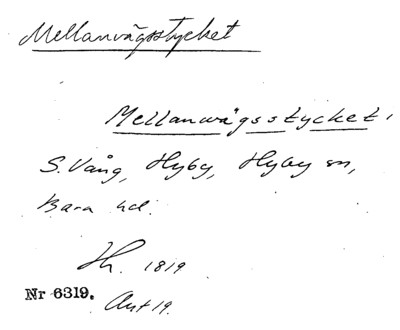 Mellanvägsstycket
Mellanvägsstycket,
S. Vång, Hyby, Hyby sn,
Bara hd.
Hh. 1819
Nr 6319. Akt 19.